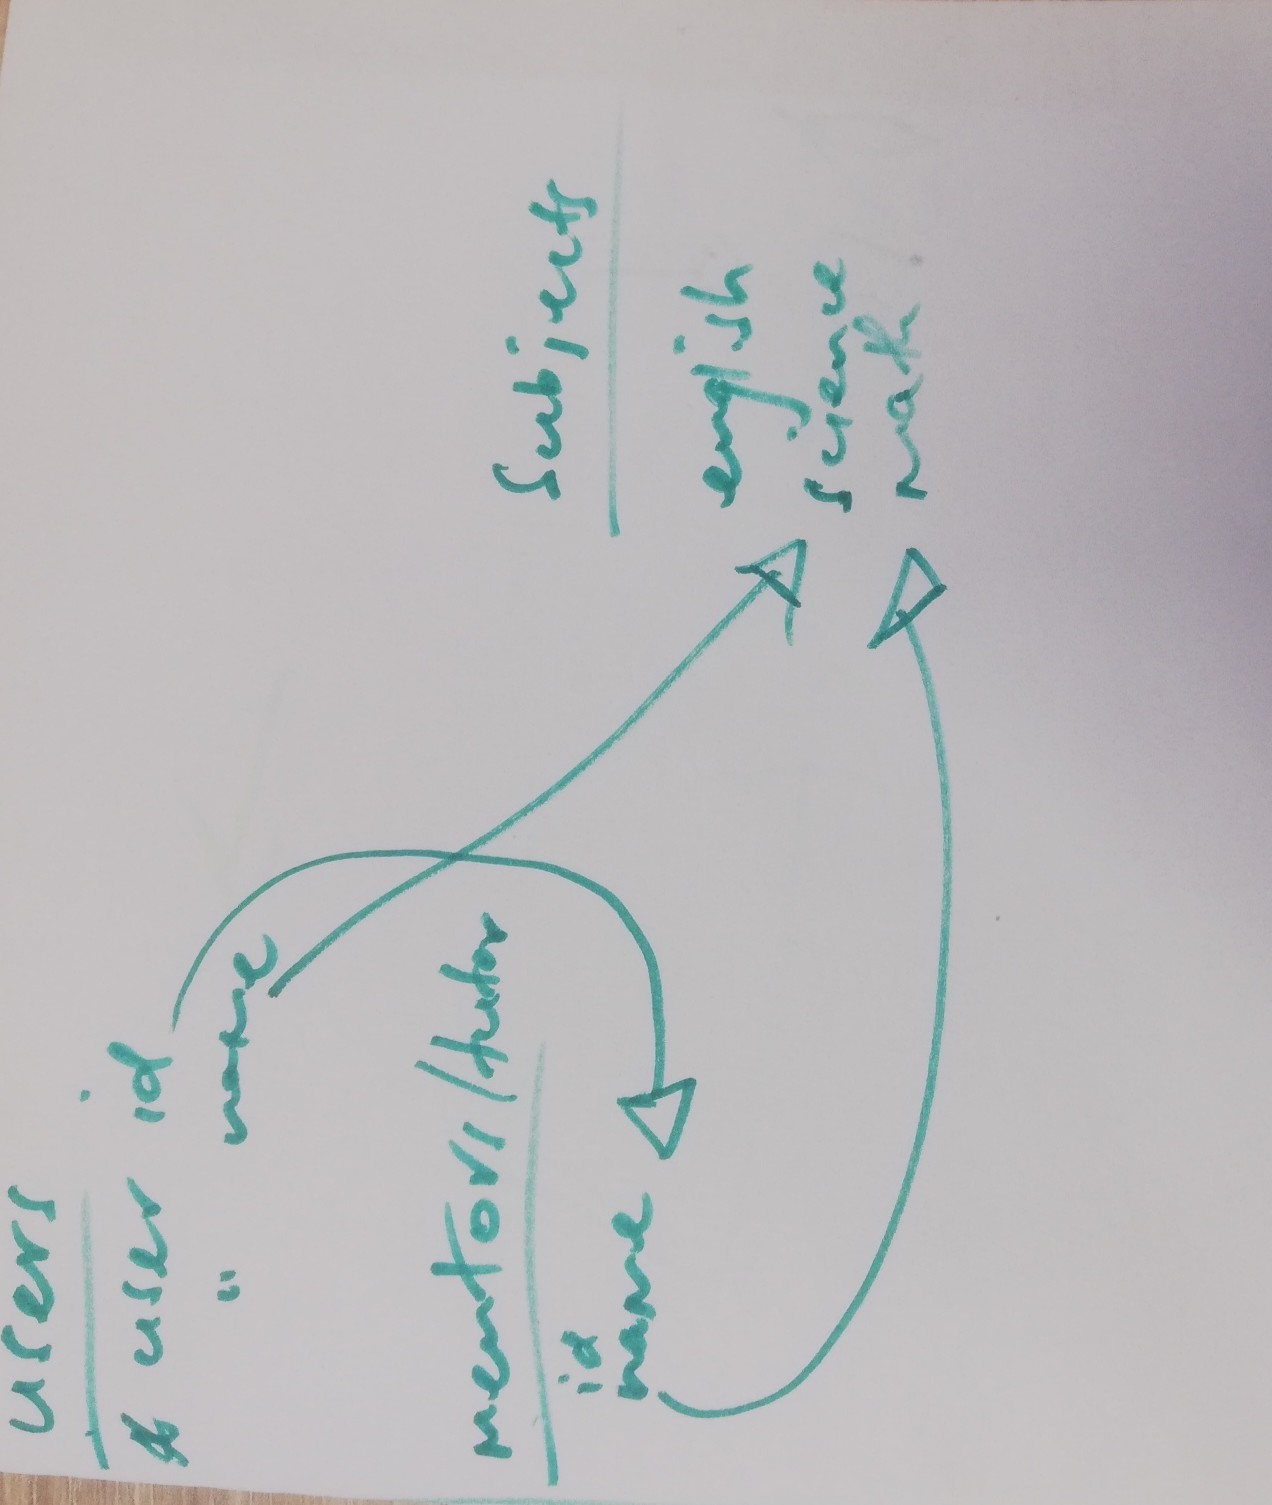 users
user id
" name
mentors/tutor
id
name
Subjects
english
science
math